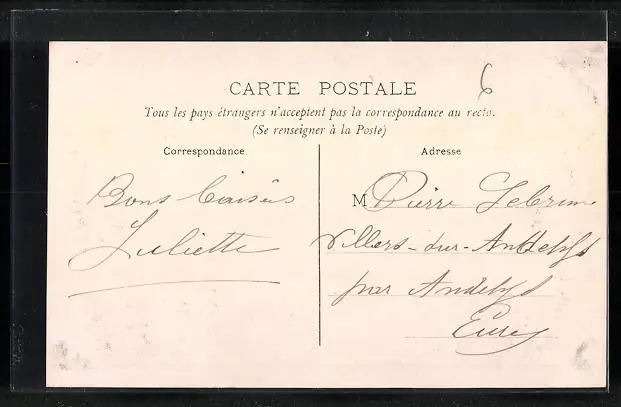 6
CARTE POSTALE
Tous les pays étrangers n'acceptent pas la correspondance au recto.
(Se renseigner à la Poste)
Correspondance.
Bons baisers
Juliette
Adresse
M Pierre Lebrun
Villers-sur-Andelys
par Andelys
Eure